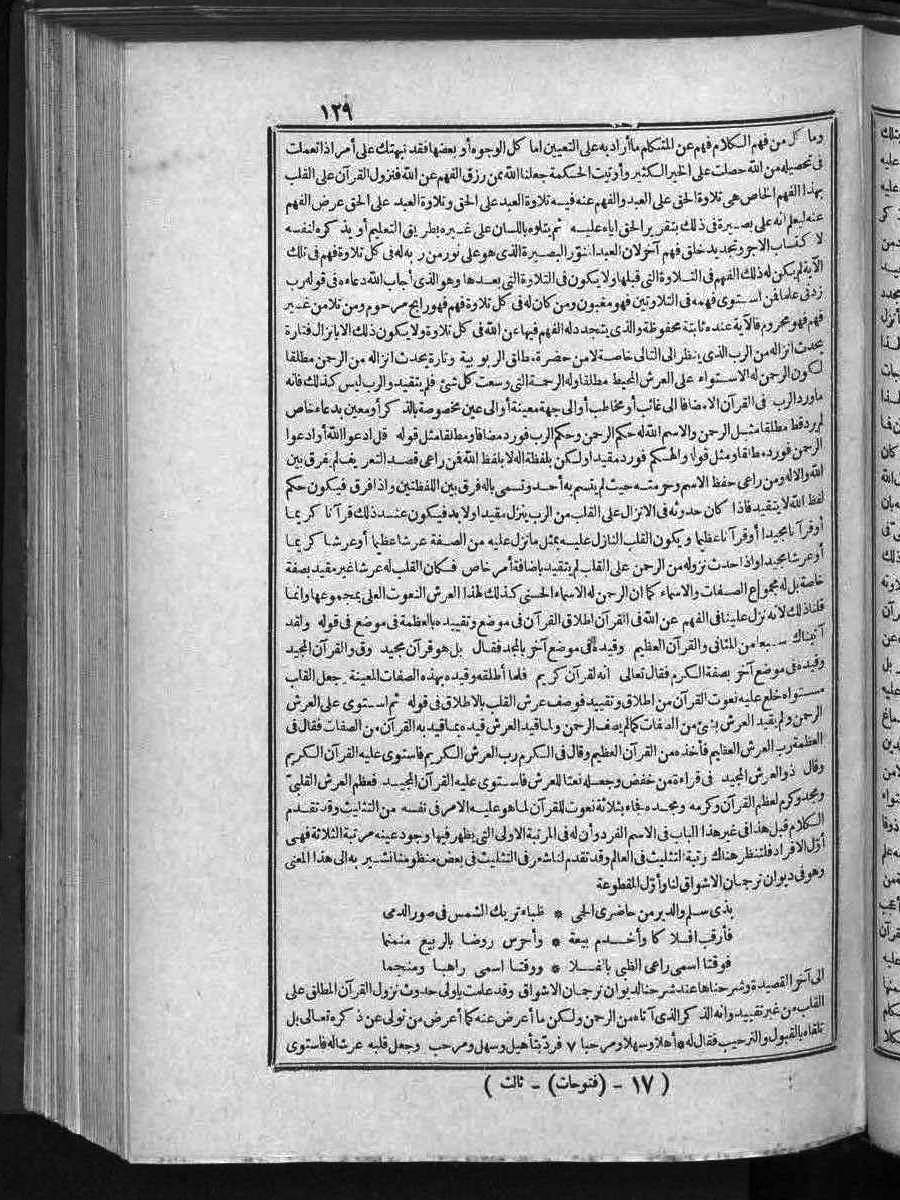 ١٢٩
وما كل من فهم الكلام فهم عن المتكلم ما أراد به على التعيين اما كل الوجوه أو بعضها فقد نبهتك على أمر اذا تعملت
فى تحصيله من الله حصلت على الخير الكثير وأوتيت الحكمة جعلنا الله ممن رزق الفهم عن الله فنزول القرآن على القلب
بهذا الفهم الخاص هى تلاوة الحق على العبد والفهم عنه فيه تلاوة العبد على الحق وتلاوة العبد على الحق عرض الفهم
عنه ليعلم انه على بصيرة فى ذلك بتقرير الحق اياه عليه ثم يتلوه باللسان على غيره بطريق التعليم أو يذكره لنفسه
لا كتساب الاجر وتجديد خلق فهم آخر لان العبد المنوّر البصيرة الذى هو على نور من ربه له فى كل تلاوة فهم فى تلك
الآية لم يكن له ذلك الفهم فى التلاوة التى قبلها ولا يكون فى التلاوة التى بعدها وهو الذى أجاب الله دعاءه فى قوله رب
زدنى علما فمن استوى فهمه فى التلاوتين فهو مغبون ومن كان له فى كل تلاوة فهم فهو رابح مرحوم ومن تلا من غير
فهم فهو محروم فالآية عنده ثابتة محفوظة والذى يتجدد له الفهم فيها عن الله فى كل تلاوة ولا يكون ذلك الا بانزال فتارة
يحدث انزاله من الرب الذى ينظر الى التالى خاصة لا من حضرة مطلق الربوبية وتارة يحدث انزاله من الرحمن مطلقا
لكون الرحمن له الاستواء على العرش المحيط مطلقا وله الرحمة التى وسعت كل شئ فلم يتقيد والرب ليس كذلك فانه
ما ورد الرب فى القرآن الا مضافا الى غائب أو مخاطب أو الى جهة معينة أو الى عين مخصوصة بالذكر أو معين بدعاء خاص
لم يرد قط مطلقا مثل الرحمن والاسم الله له حكم الرحمن وحكم الرب فورد مضافا ومطلقا مثل قوله قل ادعوا الله أو ادعوا
الرحمن فورد مطلقا ومثل قوله والهكم فورد مقيدا ولكن بلفظة اله لا بلفظ الله فمن راعى قصد التعريف لم يفرق بين
الله والاله ومن راعى حفظ الاسم وحرمته حيث لم يتسم به أحد وتسمى باله فرق بين اللفظتين واذا فرق فيكون حكم
لفظ الله لا يتقيد فاذا كان حدوثه فى الانزال على القلب من الرب ينزل مقيدا ولا بد فيكون عند ذلك قرآنا كريما
أو قرآنا مجيدا أو قرآنا عظيما ويكون القلب النازل عليه بمثل ما نزل عليه من الصفة عرشا عظيما أو عرشا كريما
أو عرشا مجيدا واذا حدث نزوله من الرحمن على القلب لم يتقيد باضافة أمر خاص فكان القلب له عرشا غير مقيد بصفة
خاصة بل له مجموع الصفات والاسماء كما ان الرحمن له الاسماء الحسنى كذلك لهذا العرش النعوت العلى بمجموعها وانما
قلنا ذلك لانه نزل علينا فى الفهم عن الله فى القرآن اطلاق القرآن فى موضع وتقييده بالعظمة فى موضع فى قوله ولقد
آتيناك سبعا من المثانى والقرآن العظيم وقيده فى موضع آخر بالمجد فقال بل هو قرآن مجيد وق والقرآن المجيد
وقيده فى موضع آخر بصفة الكرم فقال تعالى انه لقرآن كريم فلما أطلقه وقيده بهذه الصفات المعينة جعل القلب
مستواه خلع عليه نعوت القرآن من اطلاق وتقييد فوصف عرش القلب بالاطلاق فى قوله ثم استوى على العرش
الرحمن ولم يقيد العرش بشئ من الصفات كما لم يصف الرحمن ولما قيد العرش قيده بما قيد به القرآن من الصفات فقال فى
العظمة رب العرش العظيم فأخذه من القرآن العظيم وقال فى الكرم رب العرش الكريم فاستوى عليه القرآن الكريم
وقال ذو العرش المجيد فى قراءة من خفض وجعله نعتا للعرش فاستوى عليه القرآن المجيد فعظم العرش القلبىّ
ومجد وكرم لعظم القرآن وكرمه ومجده فجاء بثلاثة نعوت للقرآن لما هو عليه الامر فى نفسه من التثليث وقد تقدم
الكلام قبل هذا فى غير هذا الباب فى الاسم الفرد وأن له فى المرتبة الاولى التى يظهر فيها وجود عينه مرتبة الثلاثة فهى
أوّل الافراد فلتنظر هناك رتبة التثليث فى العالم وقد تقدم لنا شعر فى التثليث فى بعض منظومنا نشير به الى هذا المعنى
وهو فى ديوان ترجمان الاشواق لنا وأوّل المقطوعة
بذى سلم والدير من حاضرى الحمى * ظباء تريك الشمس فى صور الدمى
فأرقب افلاكا وأخدم بيعة * وأحرس روضا بالربيع منمنما
فوقتا اسمى راعى الظبى بالفلا * ووقتا اسمى راهبا ومنجما
الى آخر القصيدة وشرحناها عند شرحنا لديوان ترجمان الاشواق وقد علمت ياولى حدوث نزول القرآن المطلق على
القلب من غير تقييد وانه الذكر الذى آتاه من الرحمن ولكن ما أعرض عنه كما أعرض من تولى عن ذكره تعالى بل
تلقاه بالقبول والترحيب فقال له * أهلا وسهلا ومرحبا ٧ فردّ بتأهيل وسهل ومرحب وجعل قلبه عرشا له فاستوى
( ١٧ - (فتوحات) - ثالث )